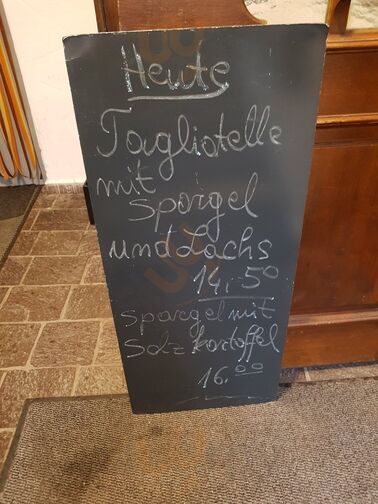 Heute
Tagliatelle
mit
Spargel
und Lachs
14,-50
Spargel mit
Salzkartoffel
16,00